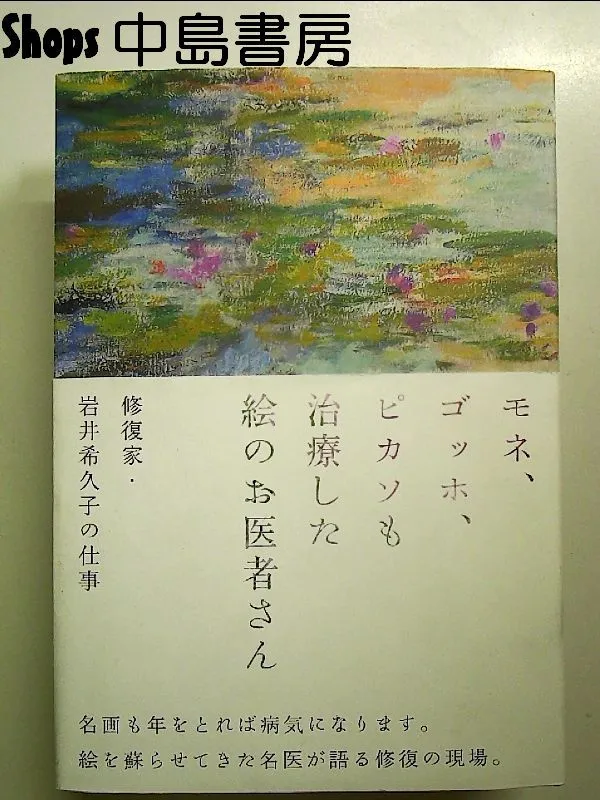 Shops 中島書房
モネ、
ゴッホ、
ピカソも
治療した
絵のお医者さん
修復家・
岩井希久子の仕事
名画も年をとれば病気になります。
絵を蘇らせてきた名医が語る修復の現場。